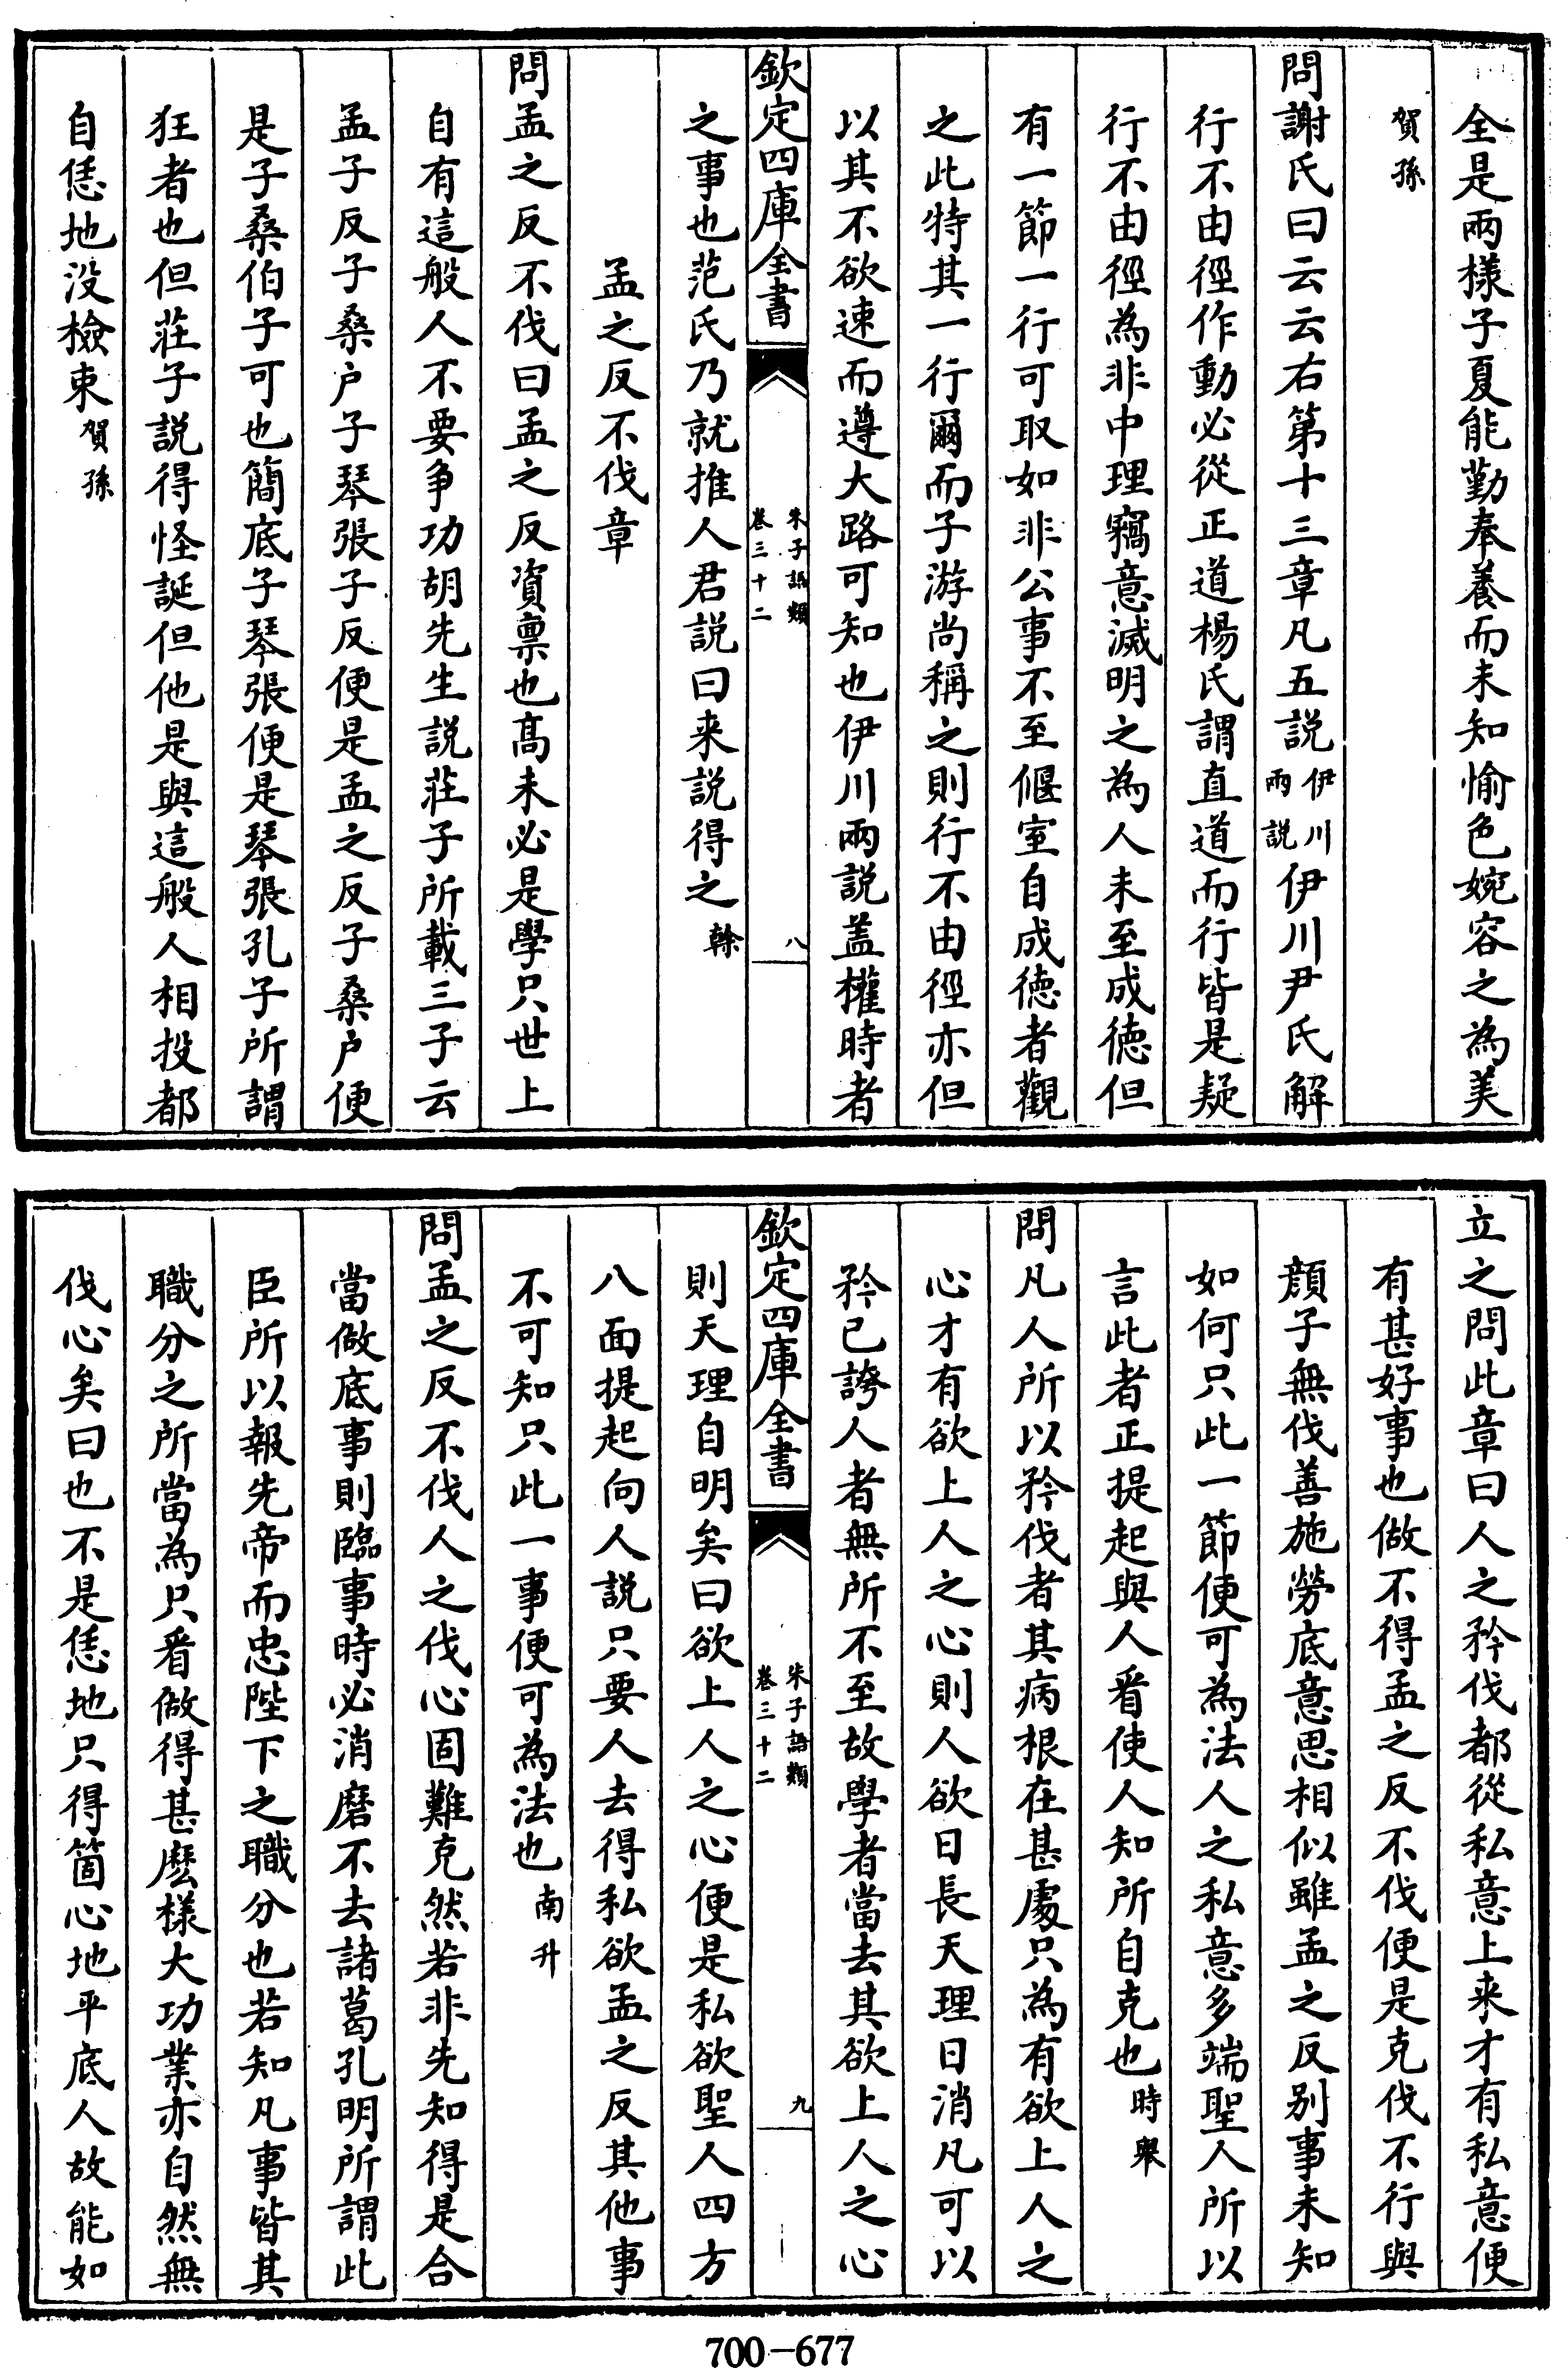 全是兩様子夏能勤奉養而未知愉色婉容之為美
賀孫
問謝氏曰云云右第十三章凡五説伊川兩説伊川尹氏解
行不由徑作動必從正道楊氏謂直道而行皆是疑
行不由徑為非中理竊意滅明之為人未至成徳但
有一節一行可取如非公事不至偃室自成徳者觀
之此特其一行爾而子游尚稱之則行不由徑亦但
以其不欲速而遵大路可知也伊川兩説盖權時者
欽定四庫全書
朱子語類
卷三十二
八
之事也范氏乃就推人君説曰来説得之榦
孟之反不伐章
問孟之反不伐曰孟之反資禀也髙未必是學只世上
自有這般人不要争功胡先生説莊子所載三子云
孟子反子桑户子琴張子反便是孟之反子桑户便
是子桑伯子可也簡底子琴張便是琴張孔子所謂
狂者也但莊子説得怪誕但他是與這般人相投都
自恁地没檢束賀孫
立之問此章曰人之矜伐都從私意上来才有私意便
有甚好事也做不得孟之反不伐便是克伐不行與
顔子無伐善施勞底意思相似雖孟之反别事未知
如何只此一節便可為法人之私意多端聖人所以
言此者正提起與人㸔使人知所自克也時舉
問凡人所以矜伐者其病根在甚處只為有欲上人之
心才有欲上人之心則人欲日長天理日消凡可以
矜已誇人者無所不至故學者當去其欲上人之心
欽定四庫全書
朱子語類
卷三十二
九
則天理自明矣曰欲上人之心便是私欲聖人四方
八面提起向人説只要人去得私欲孟之反其他事
不可知只此一事便可為法也南升
問孟之反不伐人之伐心固難克然若非先知得是合
當做底事則臨事時必消磨不去諸葛孔明所謂此
臣所以報先帝而忠陛下之職分也若知凡事皆其
職分之所當為只㸔做得甚麽様大功業亦自然無
伐心矣曰也不是恁地只得箇心地平底人故能如
700-677